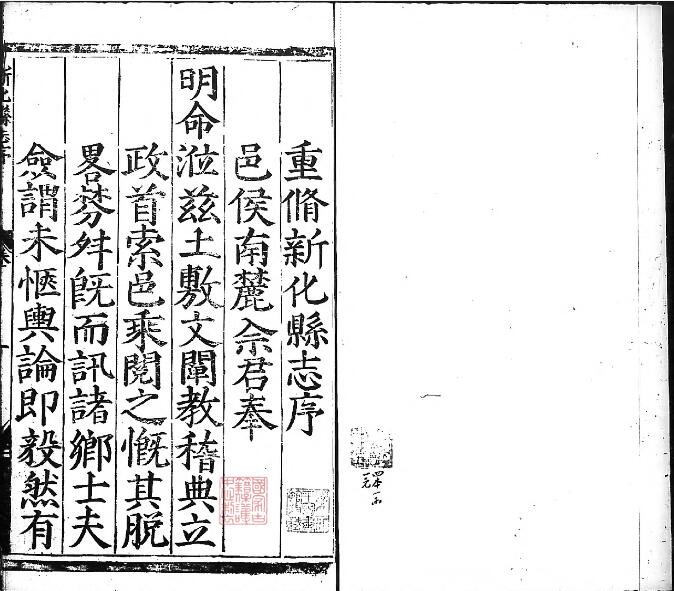 重脩新化縣志序
邑侯南麓佘君奉
明命涖兹土敷文闡教稽典立
政首索邑乘閱之慨其脱
畧棼舛旣而訊諸鄉士夫
僉謂未愜輿論即毅然有
新化縣志序